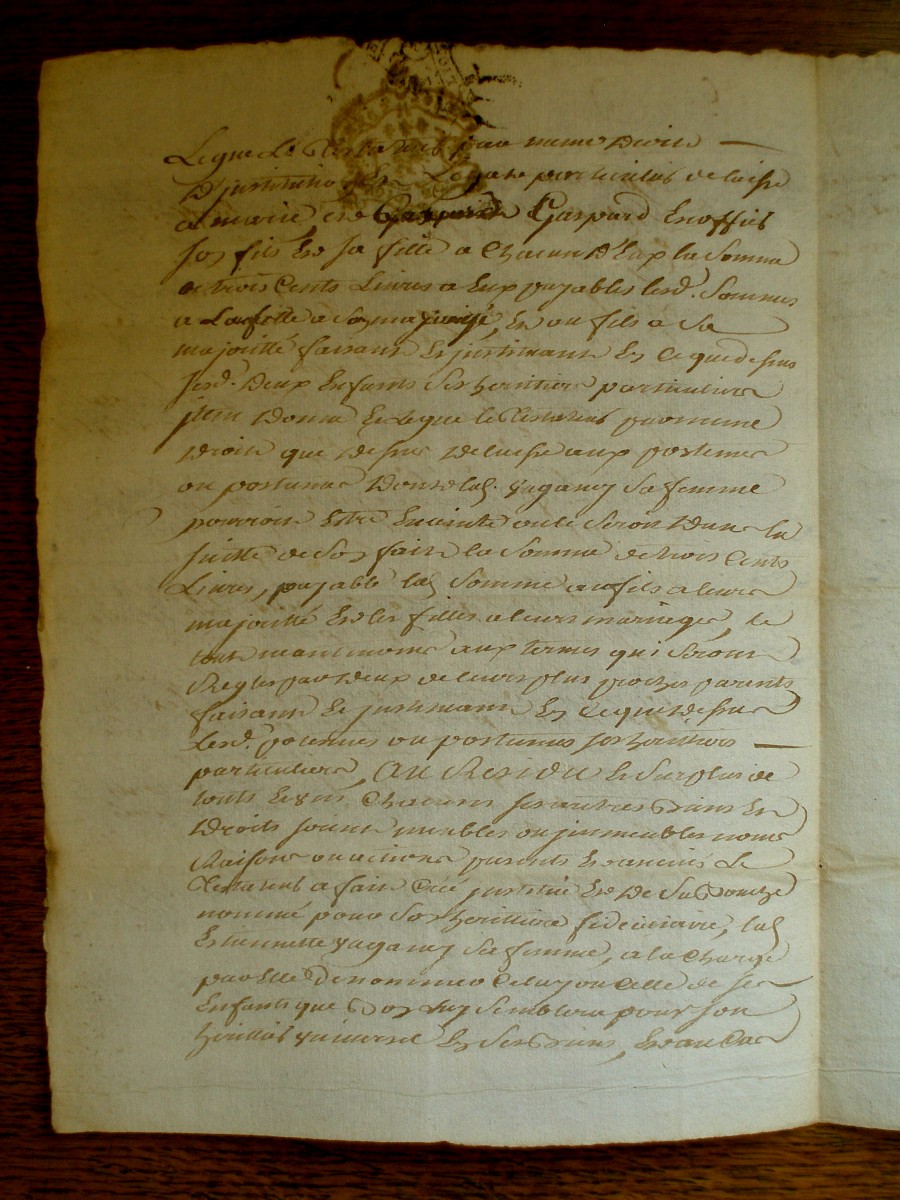 Legue le Testateur par meme Droit
D'institution et Legat particulier delaisse
a marie et Gaspard Gaspard
ses fils et sa fille a Chacun D'Eux la Somme
de trois Cents Livres a Eux payables lesd. Sommes
a La fille a Son et au fils a Sa
majoritté faisant Et justituant En Ce que dessus
Sesd. Deux Enfants Ses heritiers particuliers
jtem Donne Et Legue le Testateur par meme
Droit que dessus Delaisse aux postumes
ou postumes Dont lad. Sa femme
pourroit Estre Enceinte ou le Seroit Dans la
suitte de Son fait la Somme de trois Cents
Livres, payable lad Somme au fils a leurs
majoritté Et les filles a leurs mariages, le
tout neantmoins aux termes qui Seront
Reglés par Deux de leurs plus proches parents
faisant Et justituant En Ce que dessus
Lesd. postumes ou postumes Ses heritiers
particuliers, Au Residu Et Surplus de
touts Et uns Chacuns ses autres Biens Et
Droits soient meubles ou jmmeubles noms
Raisons ou actions presents Et avenir Le
Testateur a fait Créé justitué Et De Sa Bouche
nommé pour Son heritiere fideiciaire, lad
Estiennette Sa femme, a la Charge
par Elle De nommer Celuy ou Celle de ses
Enfants que Bon luy Semblera pour Son
heritier universel En Ses Biens, Et au Cas